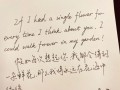 If I had a single flower for
every time I think about you, I
could walk forever in my garden!
假如每次想起你我都会得到
一朵鲜花,那么我将永远在花丛中
徜徉